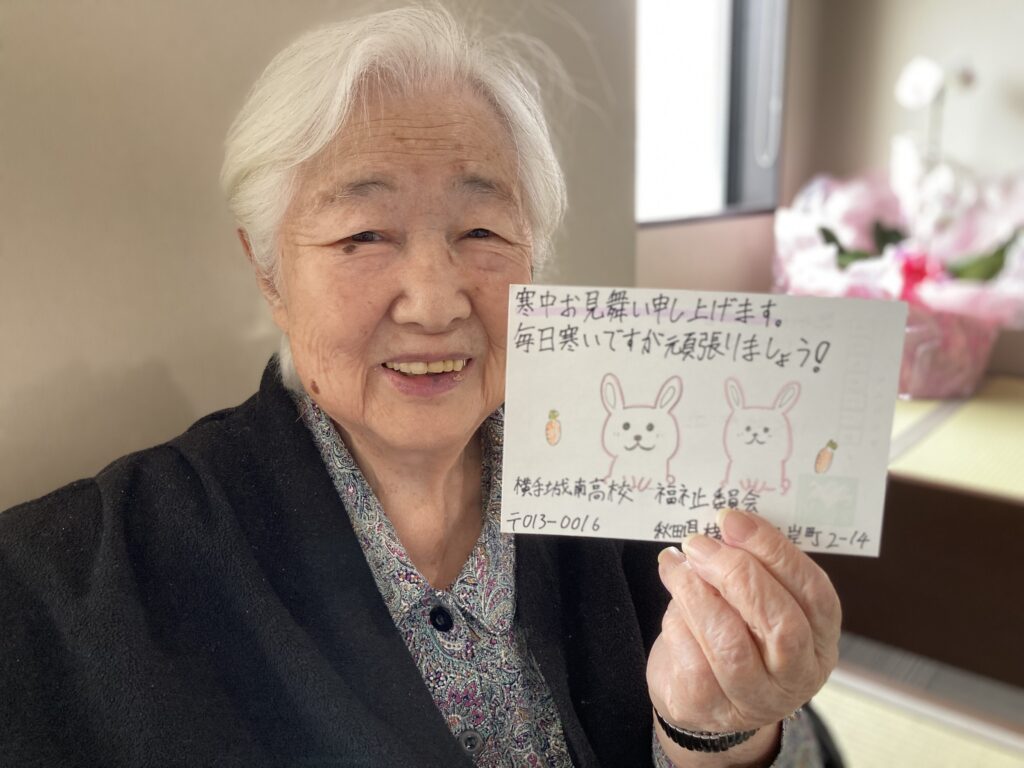 寒中お見舞い申し上げます。
毎日寒いですが頑張りましょう!
横手城南高校 福祉委員会
〒013-0016
秋田県 町2-14